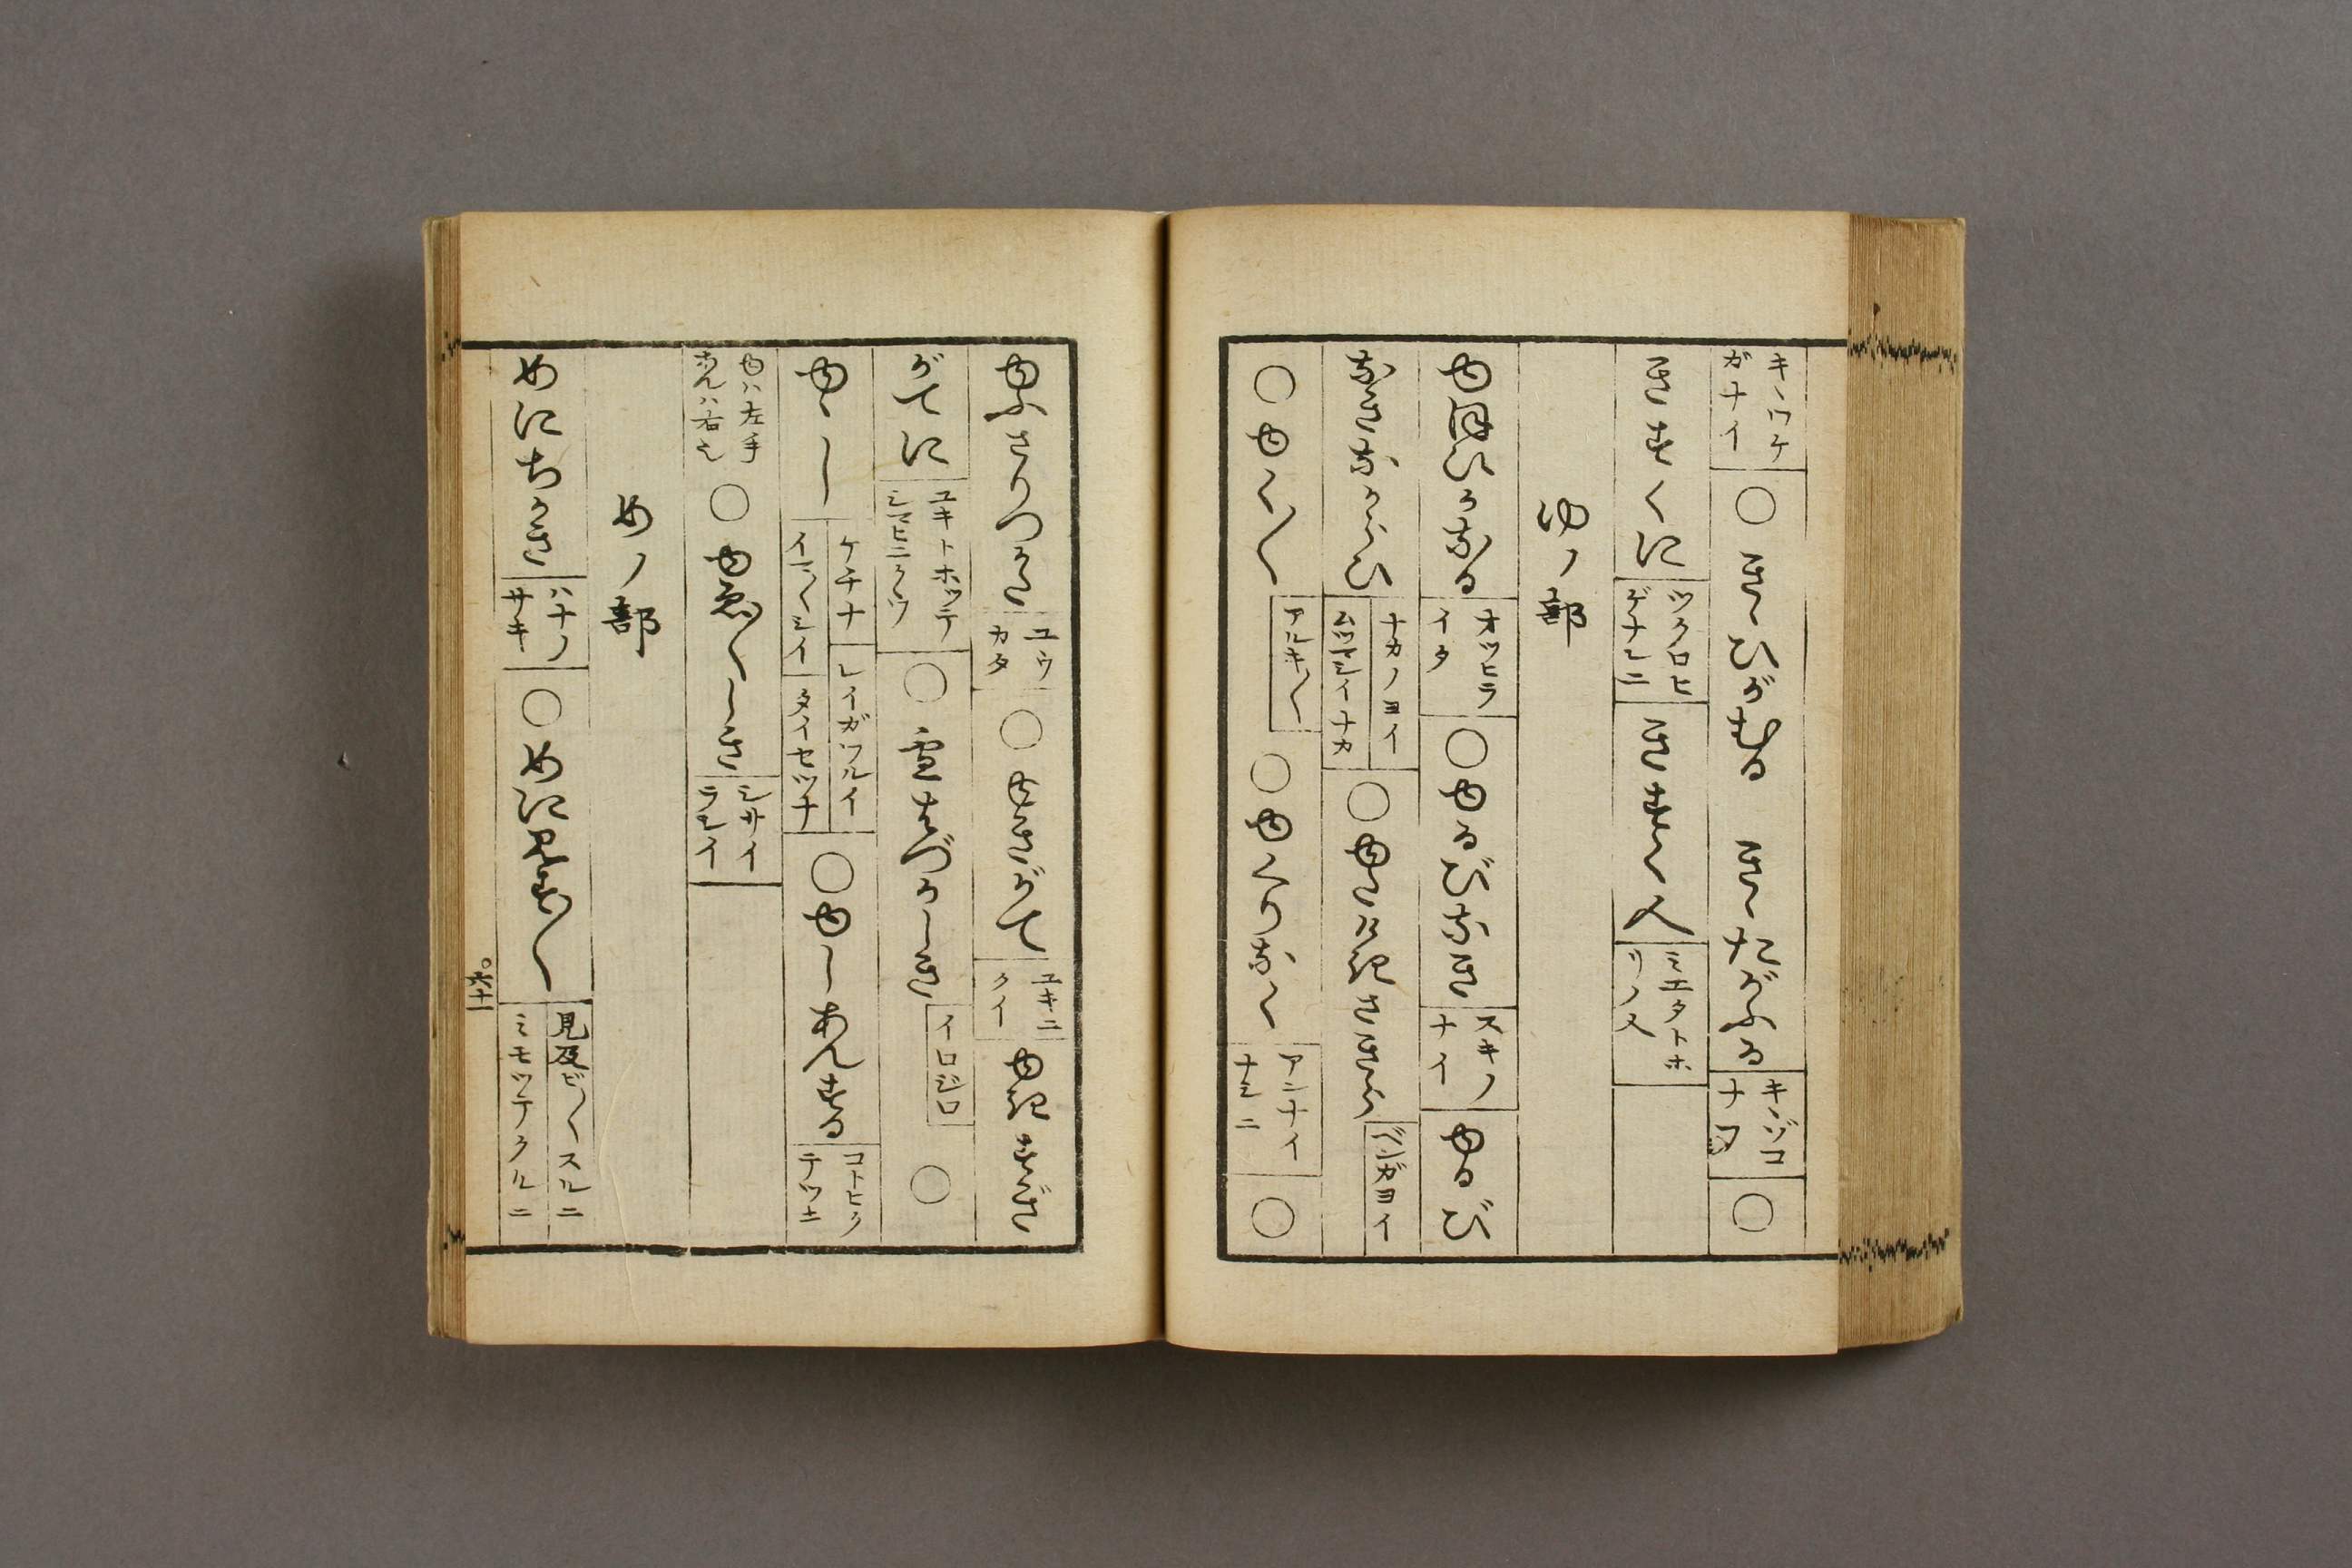 キヽワケ
ガナイ
○きゝひがむる きゝたがふる
キヽゾコ
ナフ
○
きすくに
ツクロヒ
ゲナシニ
きすく人
ミエタトホ
リノ人
ゆノ部
ゆほびかなる
オツヒラ
イタ
○ゆるびなき
スキノ
ナイ
ゆるび
なきなからひ
ナカノヨイ
ムツマシイナカ
○ゆたけきさきら
ベンガヨイ
○ゆく〳〵
アルキ〳〵
○ゆくりなく
アンナイ
ナシニ
○
ゆふさりつかた
ユウ
カタ
○ゆきがて
ユキニ
クイ
ゆきすぎ
がてに
ユキトホツテ
シマヒニクウ
○雪はづかしき
イロジロ
○
ゆゝし
ケチナ
イマ〳〵シイ
レイガワルイ
タイセツナ
○ゆしあんする
コトヒク
テツキ
ゆハ左手
あんハ右也
○ゆゑ〳〵しき
シサイ
ラシイ
めノ部
めにちかき
ハナノ
サキ
○めに見す〳〵
見及ビ〳〵スルニ
ミモツテクルニ
六十一